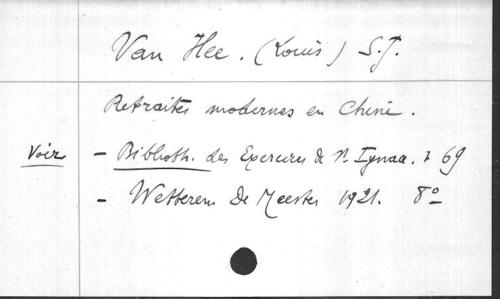 Van Hee. (Louis) S.J.
Retraites modernes en Chine.
Voir - Biblioth. des Exercices de St Ignace. 69
- Wetteren De Meester 1921. 8º